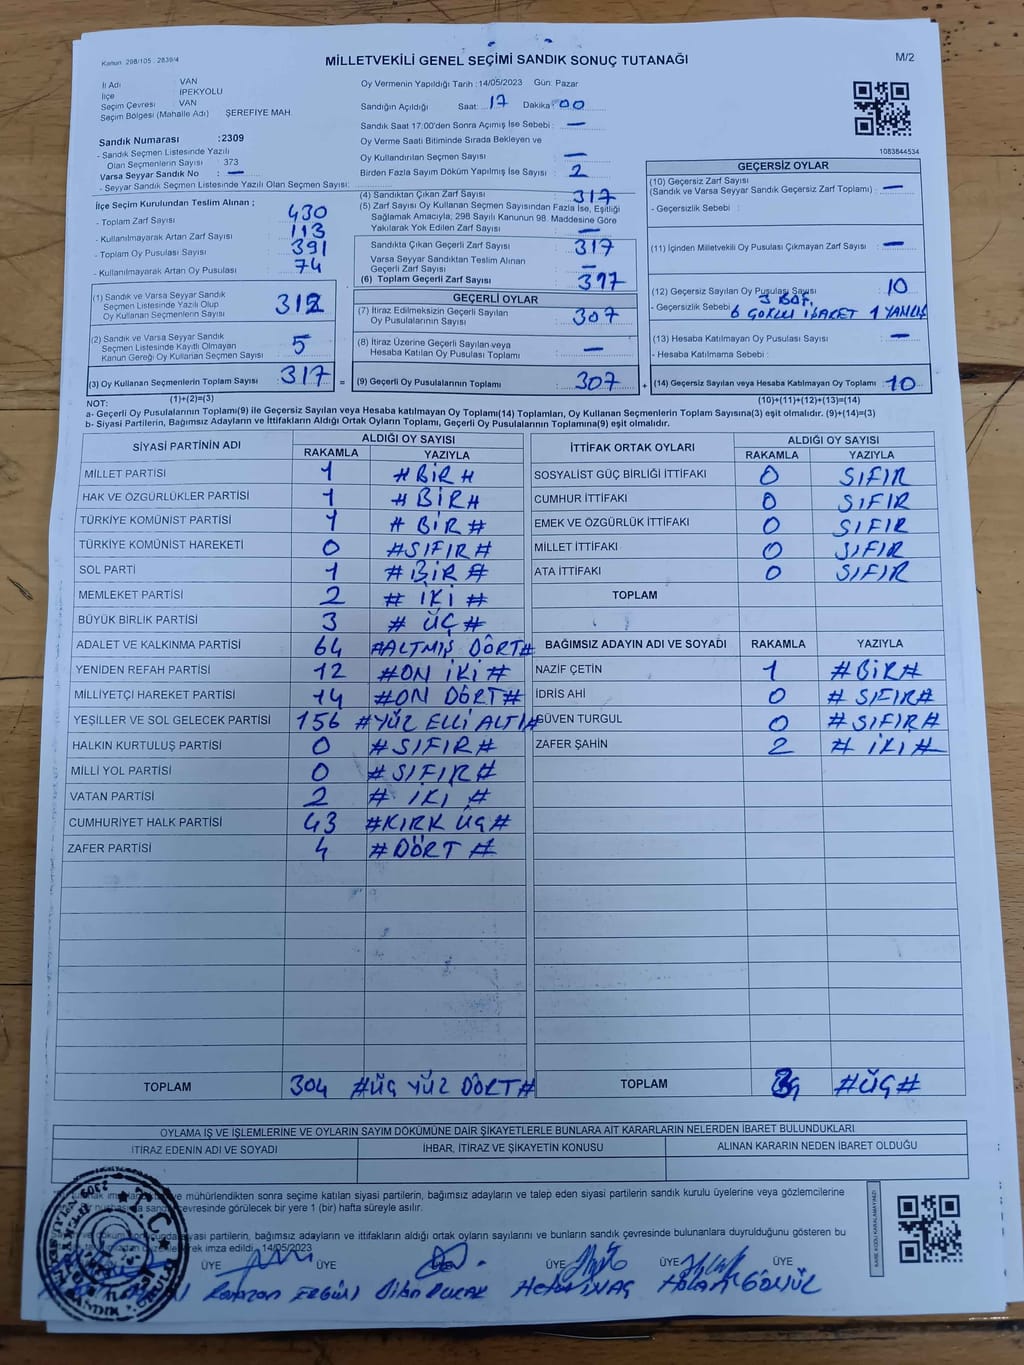 Kanun: 298/105 : 2839/4
MİLLETVEKİLİ GENEL SEÇİMİ SANDIK SONUÇ TUTANAĞI
M/2
İl Adı : VAN
İlçe : İPEKYOLU
Seçim Çevresi : VAN
Seçim Bölgesi (Mahalle Adı) : ŞEREFİYE MAH.
Sandık Numarası : 2309
- Sandık Seçmen Listesinde Yazılı
Olan Seçmenlerin Sayısı : 373
Varsa Seyyar Sandık No : —
- Seyyar Sandık Seçmen Listesinde Yazılı Olan Seçmen Sayısı:
Oy Vermenin Yapıldığı Tarih : 14/05/2023 Gün: Pazar
Sandığın Açıldığı Saat: 17 Dakika: 00
Sandık Saat 17:00'den Sonra Açımış İse Sebebi : —
Oy Verme Saati Bitiminde Sırada Bekleyen ve
Oy Kullandırılan Seçmen Sayısı : —
Birden Fazla Sayım Döküm Yapılmış İse Sayısı : 2
1083844534
İlçe Seçim Kurulundan Teslim Alınan ;
- Toplam Zarf Sayısı : 430
- Kullanılmayarak Artan Zarf Sayısı : 113
- Toplam Oy Pusulası Sayısı : 391
- Kullanılmayarak Artan Oy Pusulası : 74
(1) Sandık ve Varsa Seyyar Sandık
Seçmen Listesinde Yazılı Olup
Oy Kullanan Seçmenlerin Sayısı : 312
(2) Sandık ve Varsa Seyyar Sandık
Seçmen Listesinde Kayıtlı Olmayan
Kanun Gereği Oy Kullanan Seçmen Sayısı : 5
(3) Oy Kullanan Seçmenlerin Toplam Sayısı : 317
(1)+(2)=(3)
(4) Sandıktan Çıkan Zarf Sayısı : 317
(5) Zarf Sayısı Oy Kullanan Seçmen Sayısından Fazla İse, Eşitliği
Sağlamak Amacıyla; 298 Sayılı Kanunun 98. Maddesine Göre
Yakılarak Yok Edilen Zarf Sayısı : —
Sandıkta Çıkan Geçerli Zarf Sayısı : 317
Varsa Seyyar Sandıktan Teslim Alınan
Geçerli Zarf Sayısı : —
(6) Toplam Geçerli Zarf Sayısı : 317
GEÇERLİ OYLAR
(7) İtiraz Edilmeksizin Geçerli Sayılan
Oy Pusulalarının Sayısı : 307
(8) İtiraz Üzerine Geçerli Sayılan veya
Hesaba Katılan Oy Pusulası Toplamı : —
= (9) Geçerli Oy Pusulalarının Toplamı : 307
GEÇERSİZ OYLAR
(10) Geçersiz Zarf Sayısı
(Sandık ve Varsa Seyyar Sandık Geçersiz Zarf Toplamı) : —
- Geçersizlik Sebebi :
(11) İçinden Milletvekili Oy Pusulası Çıkmayan Zarf Sayısı : —
(12) Geçersiz Sayılan Oy Pusulası Sayısı : 10
3 BOŞ,
- Geçersizlik Sebebi : 6 ÇOKLU İŞARET 1 YANLIŞ
(13) Hesaba Katılmayan Oy Pusulası Sayısı : —
- Hesaba Katılmama Sebebi :
+ (14) Geçersiz Sayılan veya Hesaba Katılmayan Oy Toplamı : 10
(10)+(11)+(12)+(13)=(14)
NOT:
a- Geçerli Oy Pusulalarının Toplamı(9) ile Geçersiz Sayılan veya Hesaba katılmayan Oy Toplamı(14) Toplamları, Oy Kullanan Seçmenlerin Toplam Sayısına(3) eşit olmalıdır. (9)+(14)=(3)
b- Siyasi Partilerin, Bağımsız Adayların ve İttifakların Aldığı Oyların Toplamı, Geçerli Oy Pusulalarının Toplamına(9) eşit olmalıdır.
SİYASİ PARTİNİN ADI ALDIĞI OY SAYISI
RAKAMLA YAZIYLA
MİLLET PARTİSİ 1 #BİR#
HAK VE ÖZGÜRLÜKLER PARTİSİ 1 #BİR#
TÜRKİYE KOMÜNİST PARTİSİ 1 #BİR#
TÜRKİYE KOMÜNİST HAREKETİ 0 #SIFIR#
SOL PARTİ 1 #BİR#
MEMLEKET PARTİSİ 2 #İKİ#
BÜYÜK BİRLİK PARTİSİ 3 #ÜÇ#
ADALET VE KALKINMA PARTİSİ 64 #ALTMIŞ DÖRT#
YENİDEN REFAH PARTİSİ 12 #ON İKİ#
MİLLİYETÇİ HAREKET PARTİSİ 14 #ON DÖRT#
YEŞİLLER VE SOL GELECEK PARTİSİ 156 #YÜZ ELLİ ALTI#
HALKIN KURTULUŞ PARTİSİ 0 #SIFIR#
MİLLİ YOL PARTİSİ 0 #SIFIR#
VATAN PARTİSİ 2 #İKİ#
CUMHURİYET HALK PARTİSİ 43 #KIRK ÜÇ#
ZAFER PARTİSİ 4 #DÖRT#
TOPLAM 304 #ÜÇ YÜZ DÖRT#
İTTİFAK ORTAK OYLARI ALDIĞI OY SAYISI
RAKAMLA YAZIYLA
SOSYALİST GÜÇ BİRLİĞİ İTTİFAKI 0 SIFIR
CUMHUR İTTİFAKI 0 SIFIR
EMEK VE ÖZGÜRLÜK İTTİFAKI 0 SIFIR
MİLLET İTTİFAKI 0 SIFIR
ATA İTTİFAKI 0 SIFIR
TOPLAM
BAĞIMSIZ ADAYIN ADI VE SOYADI RAKAMLA YAZIYLA
NAZİF ÇETİN 1 #BİR#
İDRİS AHİ 0 #SIFIR#
GÜVEN TURGUL 0 #SIFIR#
ZAFER ŞAHİN 2 #İKİ#
TOPLAM 3 #ÜÇ#
OYLAMA İŞ VE İŞLEMLERİNE VE OYLARIN SAYIM DÖKÜMÜNE DAİR ŞİKAYETLERLE BUNLARA AİT KARARLARIN NELERDEN İBARET BULUNDUKLARI
İTİRAZ EDENİN ADI VE SOYADI İHBAR, İTİRAZ VE ŞİKAYETİN KONUSU ALINAN KARARIN NEDEN İBARET OLDUĞU
ve mühürlendikten sonra seçime katılan siyasi partilerin, bağımsız adayların ve talep eden siyasi partilerin sandık kurulu üyelerine veya gözlemcilerine
çevresinde görülecek bir yere 1 (bir) hafta süreyle asılır.
siyasi partilerin, bağımsız adayların ve ittifakların aldığı ortak oyların sayılarını ve bunların sandık çevresinde bulunanlara duyrulduğunu gösteren bu
imza edildi. 14/05/2023
ÜYE ÜYE ÜYE ÜYE ÜYE
Ramazan